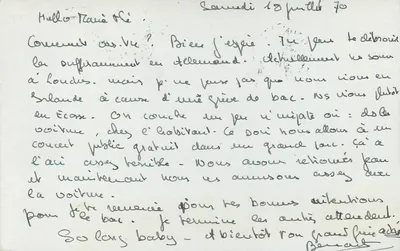 Samedi 18 juillet 70
Hello Marie
Comment vas-tu? Bien j'espère. Tu peux te débrouiller
suffisamment en Allemand. Actuellement ns sommes
à Londres. mais je ne pense pas que nous irons en
Irlande à cause d'une grève de bac. Ns irons plutôt
en Ecosse. On couche un peu n'importe où : ds les
voitures, chez l'habitant. Ce soir nous allons à un
concert public gratuit dans un grand parc. Ça a
l'air assez terrible. Nous avons retrouvé Jean
et maintenant nous ns amusons assez avec
la voiture.
Je te remercie pour tes bonnes intentions
pour le bac. Je termine les autres attendent.
So long baby - A bientôt ton grand
Bernard